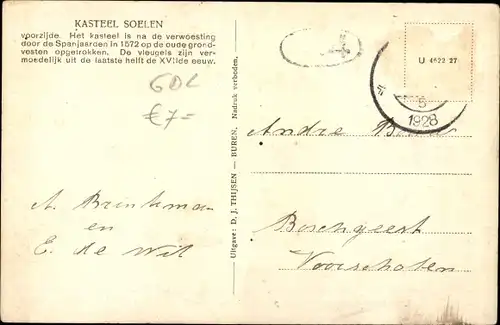 KASTEEL SOELEN
voorzijde. Het kasteel is na de verwoesting
door de Spanjaarden in 1572 op de oude grond-
vesten opgetrokken. De vleugels zijn ver-
moedelijk uit de laatste helft de XVIIde eeuw.
GDL
€7=
A. Brinkman
en
E. de Wit
Uitgave: D. J. THIJSEN — BUREN. Nadruk verboden.
U 4622 27
8
1928
Andre
Boschgeest
Voorschoten